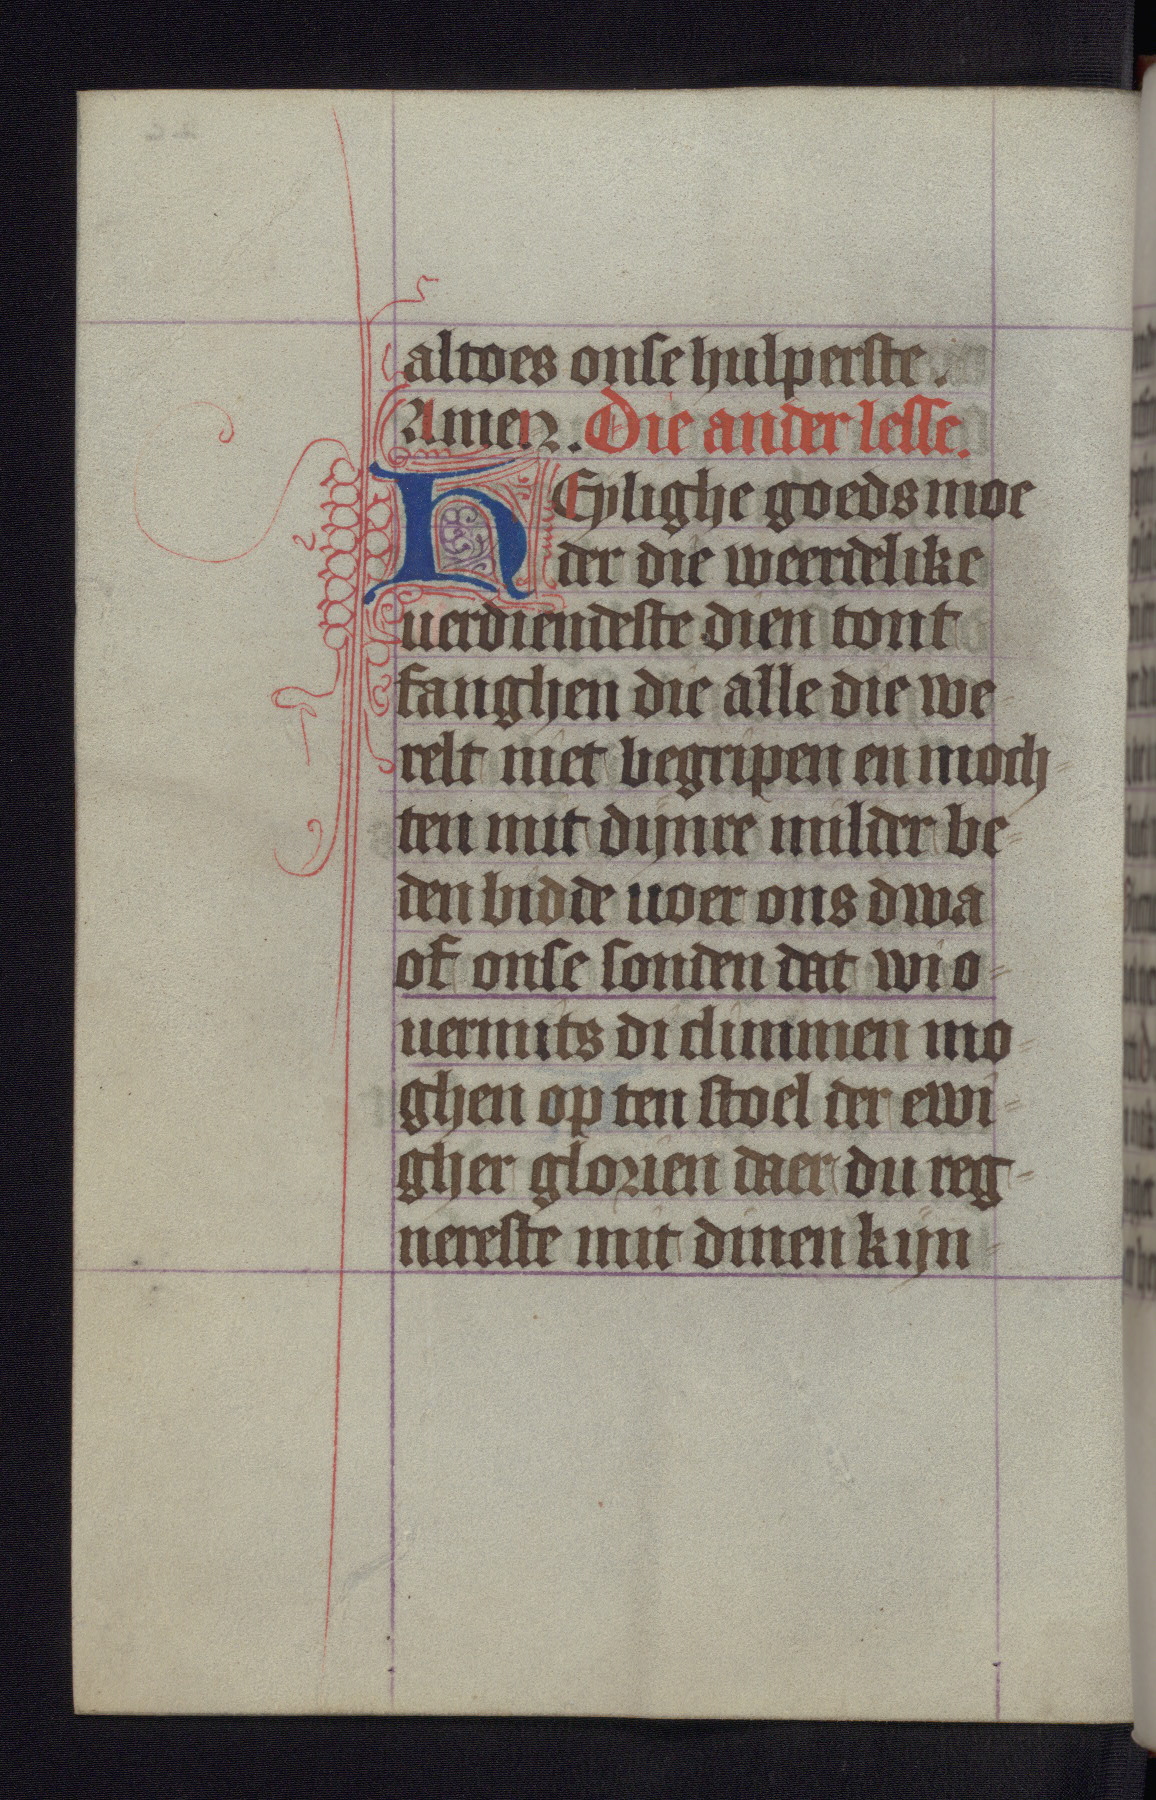 altoes onse hulperste.
Amen. Die ander lesse.
HEylighe goeds moe
der die weerdelike
uerdiendeste dien tont
fanghen die alle die we
relt niet begripen en moch
ten mit dijnre milder be
den bidde uoer ons dwa
of onse sonden dat wi o
uermits di climmen mo
ghen op ten stoel der ewi
gher glorien daer du reg
nereste mit dinen kijn